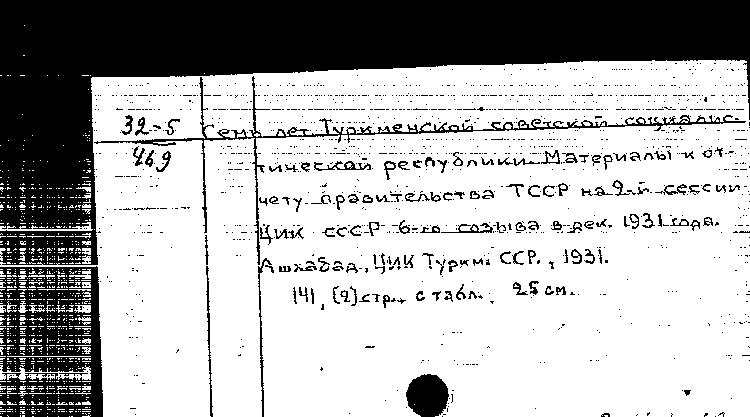 32-5 Семь лет Туркменской советской социалис-
469 тической республики. Материалы к от-
чету правительства ТССР на 2-й сессии
ЦИК СССР 6-го созыва в дек. 1931 года.
Ашхабад, ЦИК Туркм. ССР., 1931.
141, [2] стр., с табл., 25 см.